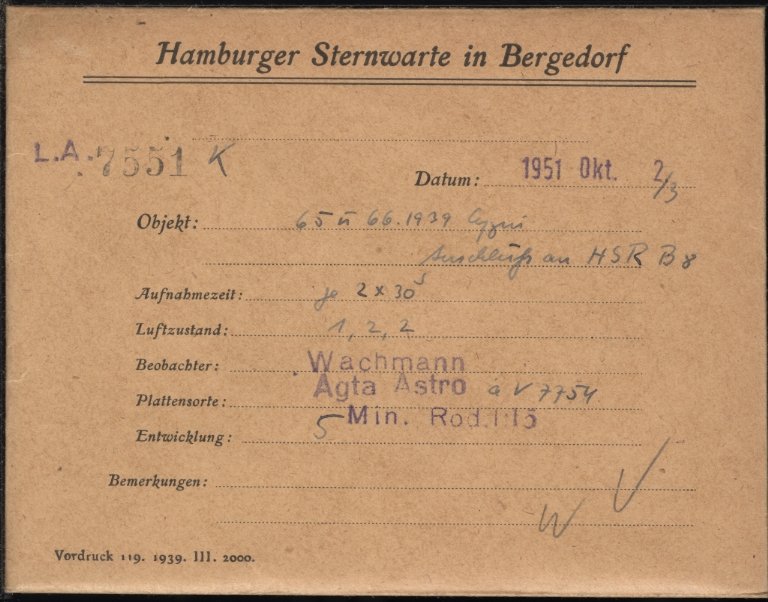 Hamburger Sternwarte in Bergedorf
L.A. 7551 K
Datum: 1951 Okt. 2/3
Objekt: 65 u 66.1939 Cygni
Anschluß an HSR B8
Aufnahmezeit: je 2 x 30s
Luftzustand: 1, 2, 2
Beobachter: Wachmann
Plattensorte: Agfa Astro a V 7754
Entwicklung: 5 Min. Rod. 1:15
Bemerkungen:
W
Vordruck 119. 1939. III. 2000.